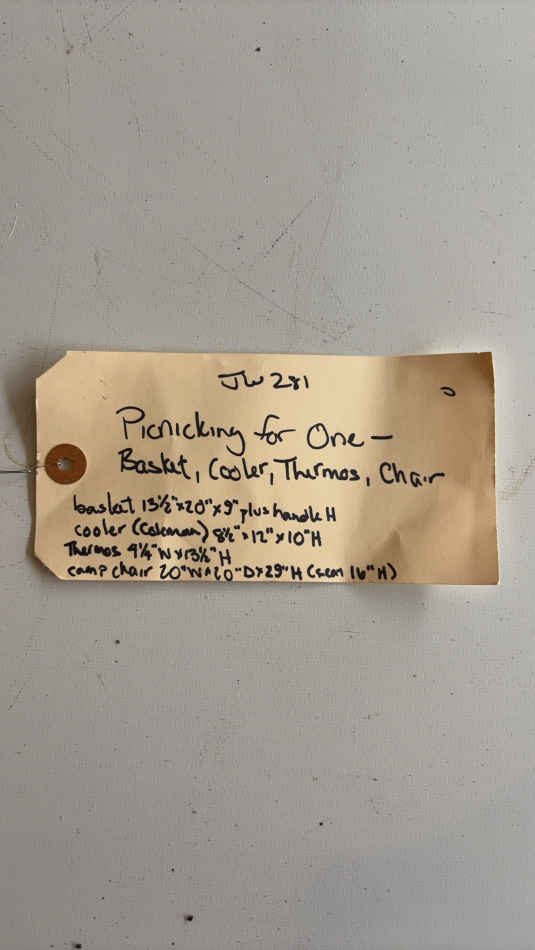 JW 281
Picnicking for One —
Basket, Cooler, Thermos, Chair
basket 13½"x20"x9" plus handle H
cooler (Coleman) 8½"x12"x10"H
Thermos 4¼"W x13½"H
camp chair 20"W x20"D x29"H (seat 16"H)